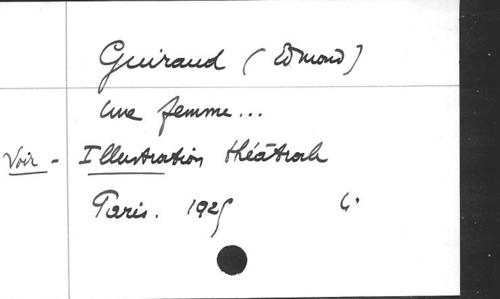 Guiraud (Edmond)
Une femme...
Voir - Illustration théâtrale
Paris. 1925 4°